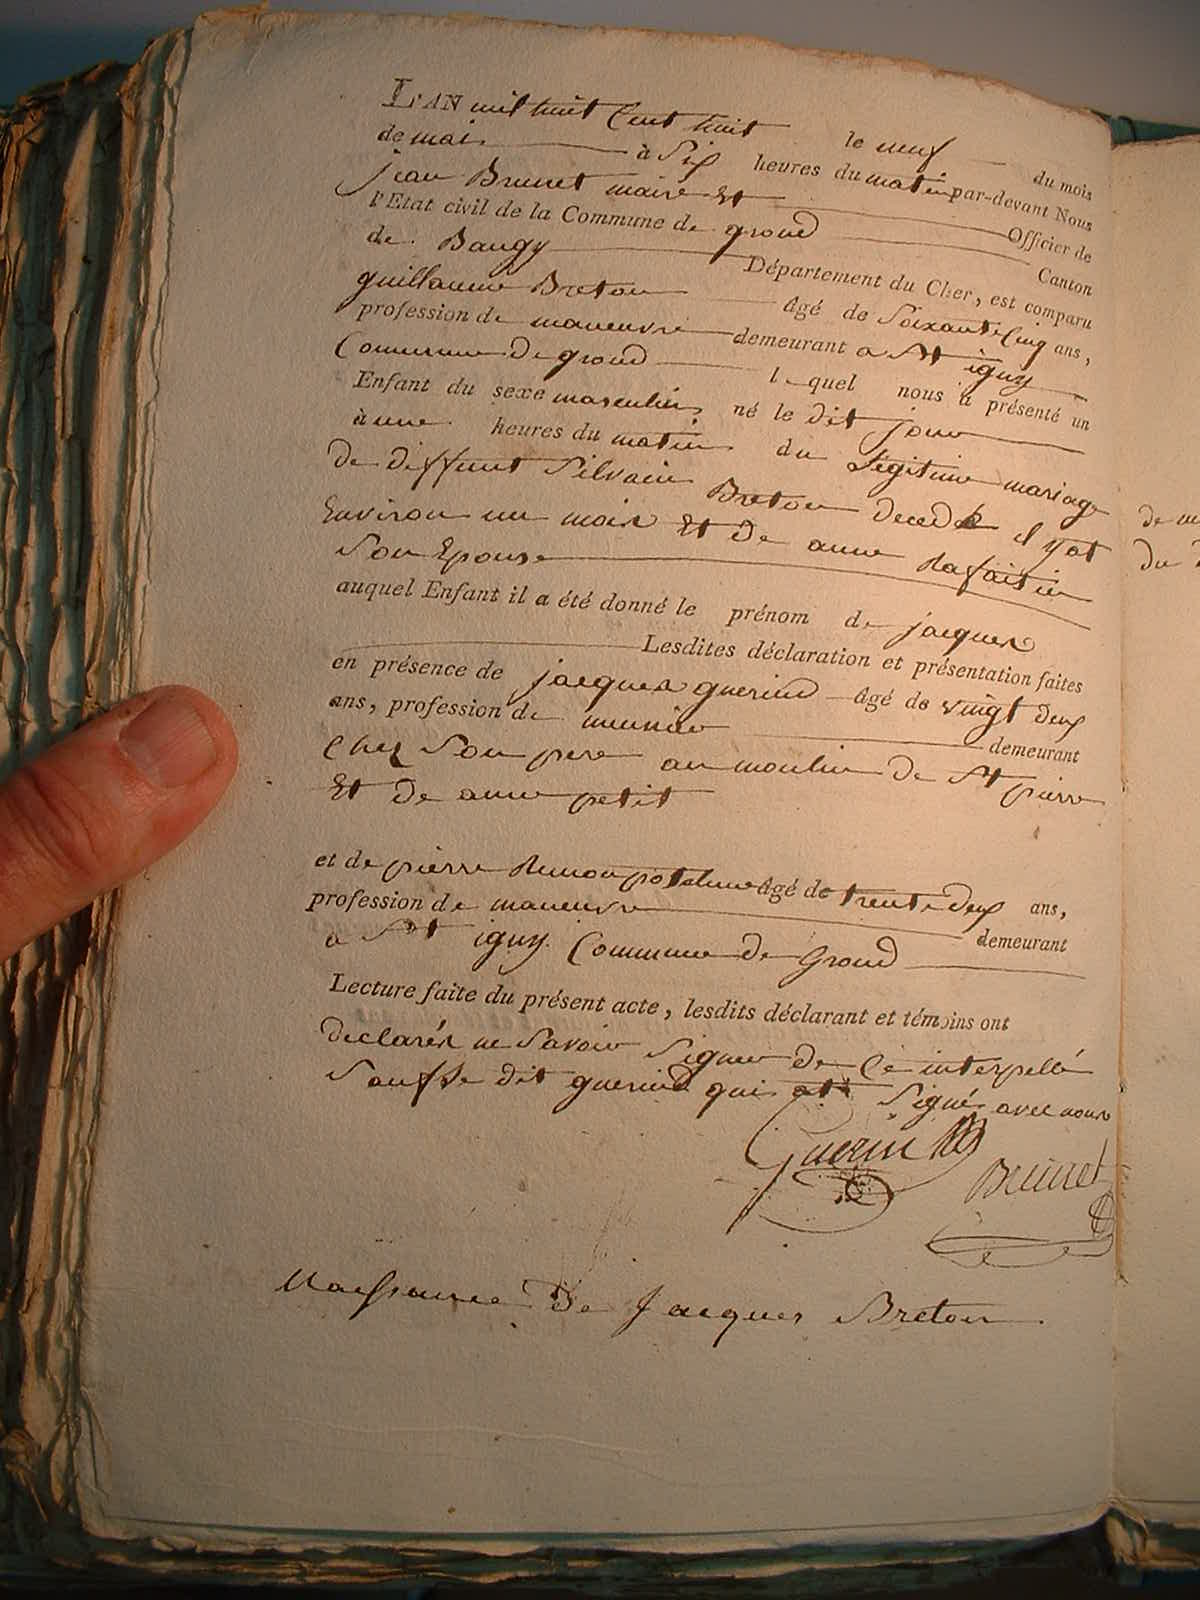 L'AN mil huit Cent huit le neuf du mois
de mai à Six heures du matin par-devant Nous
jean Brunet maire Et Officier de
l'Etat civil de la Commune de grond Canton
de Baugy Département du Cher, est comparu
guillaume Breton âgé de Soixante Cinq ans,
profession de maneuvre demeurant a St iguy
Commune De grond l quel nous a présenté un
Enfant du sexe masculin né le dit jour
à une heures du matin du Légitime mariage
De diffunt Silvain Breton decedé il yat
Environ un mois Et De anne Rafaitin
Son Epouse
auquel Enfant il a été donné le prénom de jacques
Lesdites déclaration et présentation faites
en présence de jacques guerind âgé de vingt deux
ans, profession de meunier demeurant
Chez Son pere au moulin De St pierre
Et De anne petit
et de pierre âgé de trente deux ans,
profession de maneuvre demeurant
a St iguy Commune de Grond
Lecture faite du présent acte, lesdits déclarant et témoins ont
declarés ne Savoir Signer De Ce interpellé
Sauf le dit guerind qui at Signé avec nous
Guerin Brunet
Naissance De Jacques Breton
de m
du